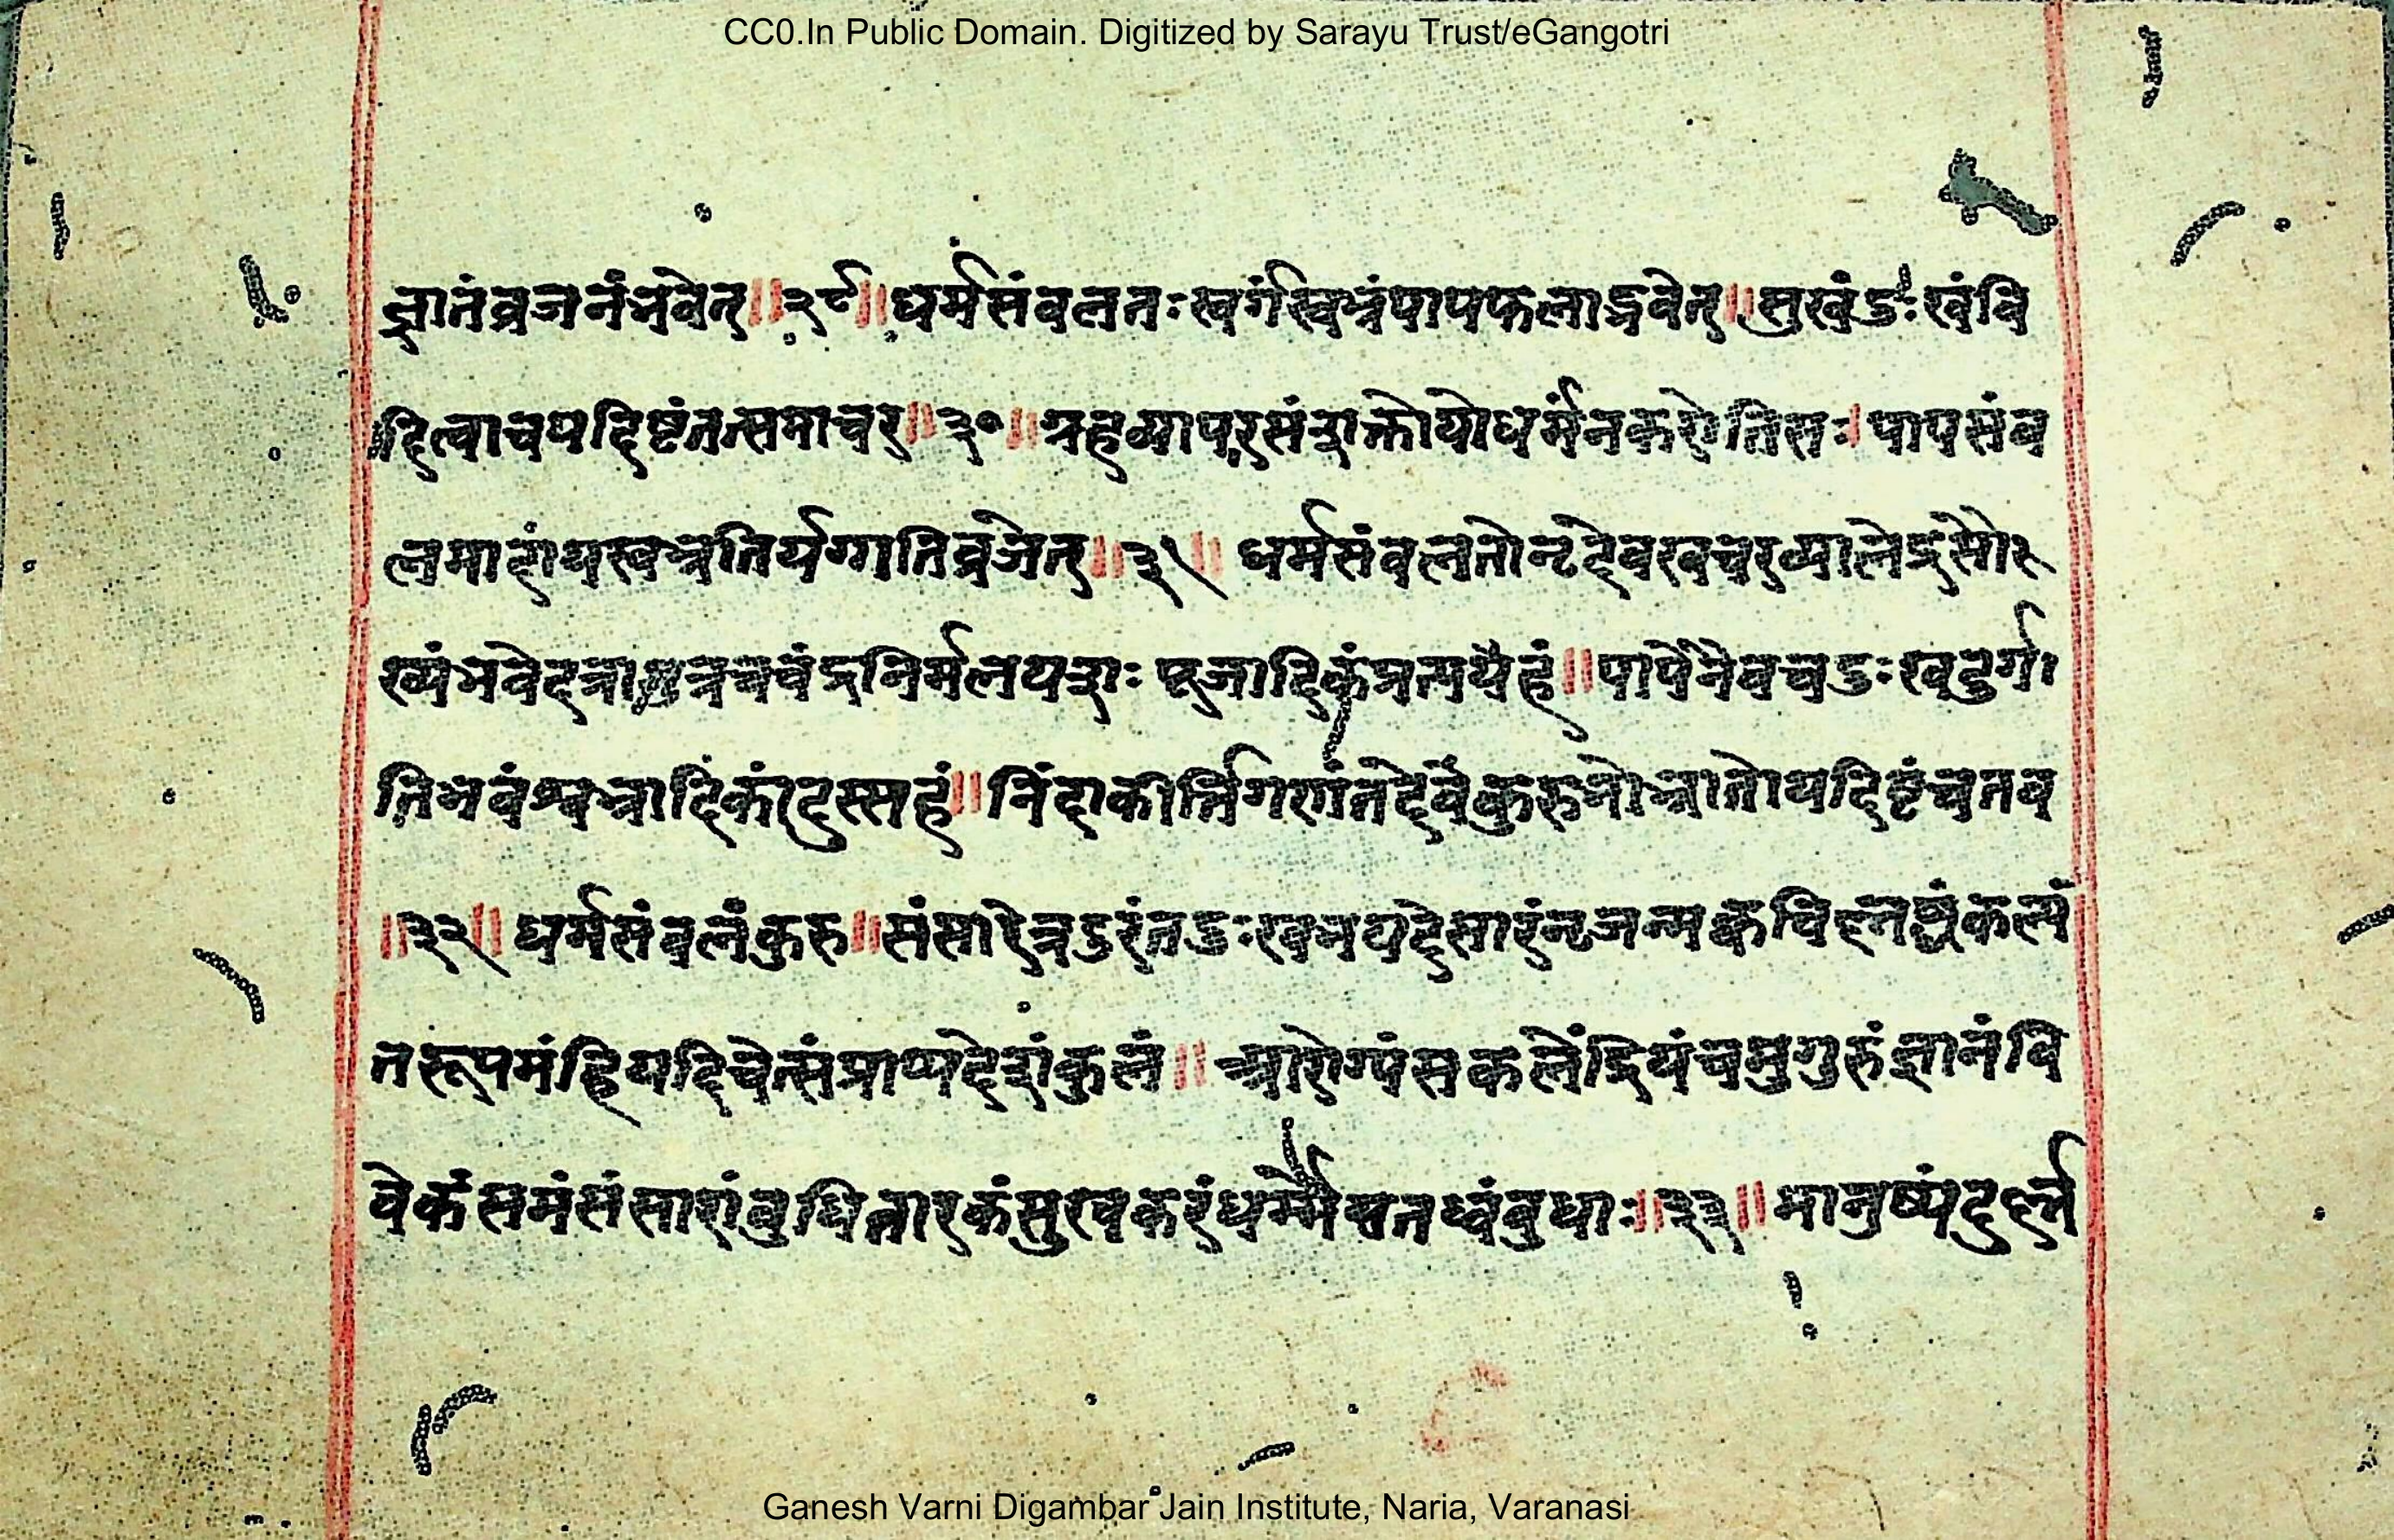 CC0.In Public Domain. Digitized by Sarayu Trust/eGangotri
ज्ञानंव्रजनंभवेत्॥२९॥धर्मसंबलतःस्वर्गस्वभ्रंपापफलाद्भवेत्॥सुखंदुःखंवि
दित्वाचयदिष्टंतत्समाचर॥३०॥ग्रहव्यापरसंशक्तोयोधर्मंनकरोतिसः।पापसंब
लमादायस्वभ्रतिर्यग्गतिव्रजेत्॥३१॥धर्मसंबलतोनृदेवखचरव्यालेंद्रसौर
ख्यंभवेद
निर्मलयशःपूजादिकं॥पापेनैवचदुःखदुर्गा
तिभवंश्वभ्रादिकंदुस्सहं॥निंदाकीर्त्तिगणंतदेवकुरुभोभ्रातोयदिष्टंचतव
॥३२॥धर्मसंबलंकुरु॥संसारेत्रदुरंतदुःखभयदेसारंनृजन्मक्वचिद्
तरूपमंह्रियदिचेत्संप्राप्यदेशंकुलं॥आरोग्यंसकलेंद्रियंचसुगुरुंज्ञानंवि
वेकंसमंसंसारांबुधितारकंसुखकरंधर्म्मेयतध्वंबुधाः॥३३॥मानुष्यंदुर्ल्लभ
Ganesh Varni Digambar Jain Institute, Naria, Varanasi